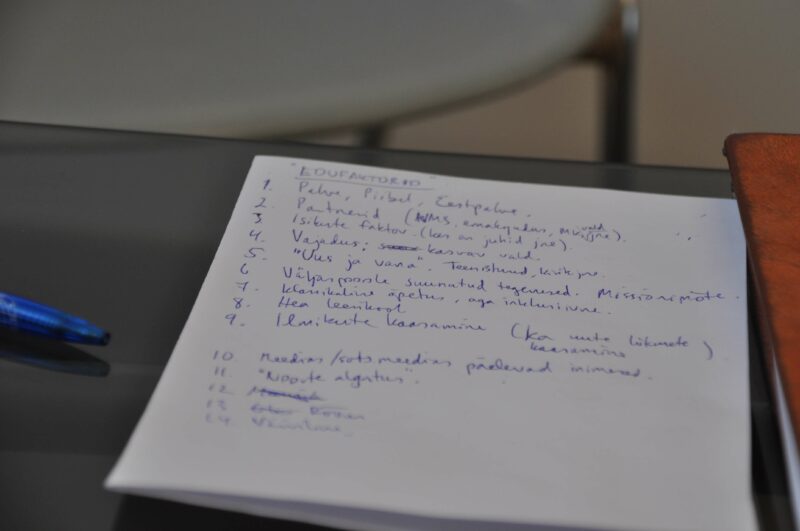 "EDUFAKTORID"
1. Palve, Piibel, Eestpalve.
2. Partnerid (NMS, emakogudus, vald
3 Isikute faktor. (kes on juhid jne).
4. Vajadus; kasvav vald.
5. "Uus ja vana". Teenistused,
6 Väljapoole suunatud tegevused. Missionimõte.
7. Klassikaline õpetus, aga inklusiivne.
8. Hea leerikool
9. Ilmikute kaasamine (ka uute liikmete kaasamine)
10. Meedias/sots.meedias pädevad inimesed.
11. "Noorte algatus".
12
13
14.